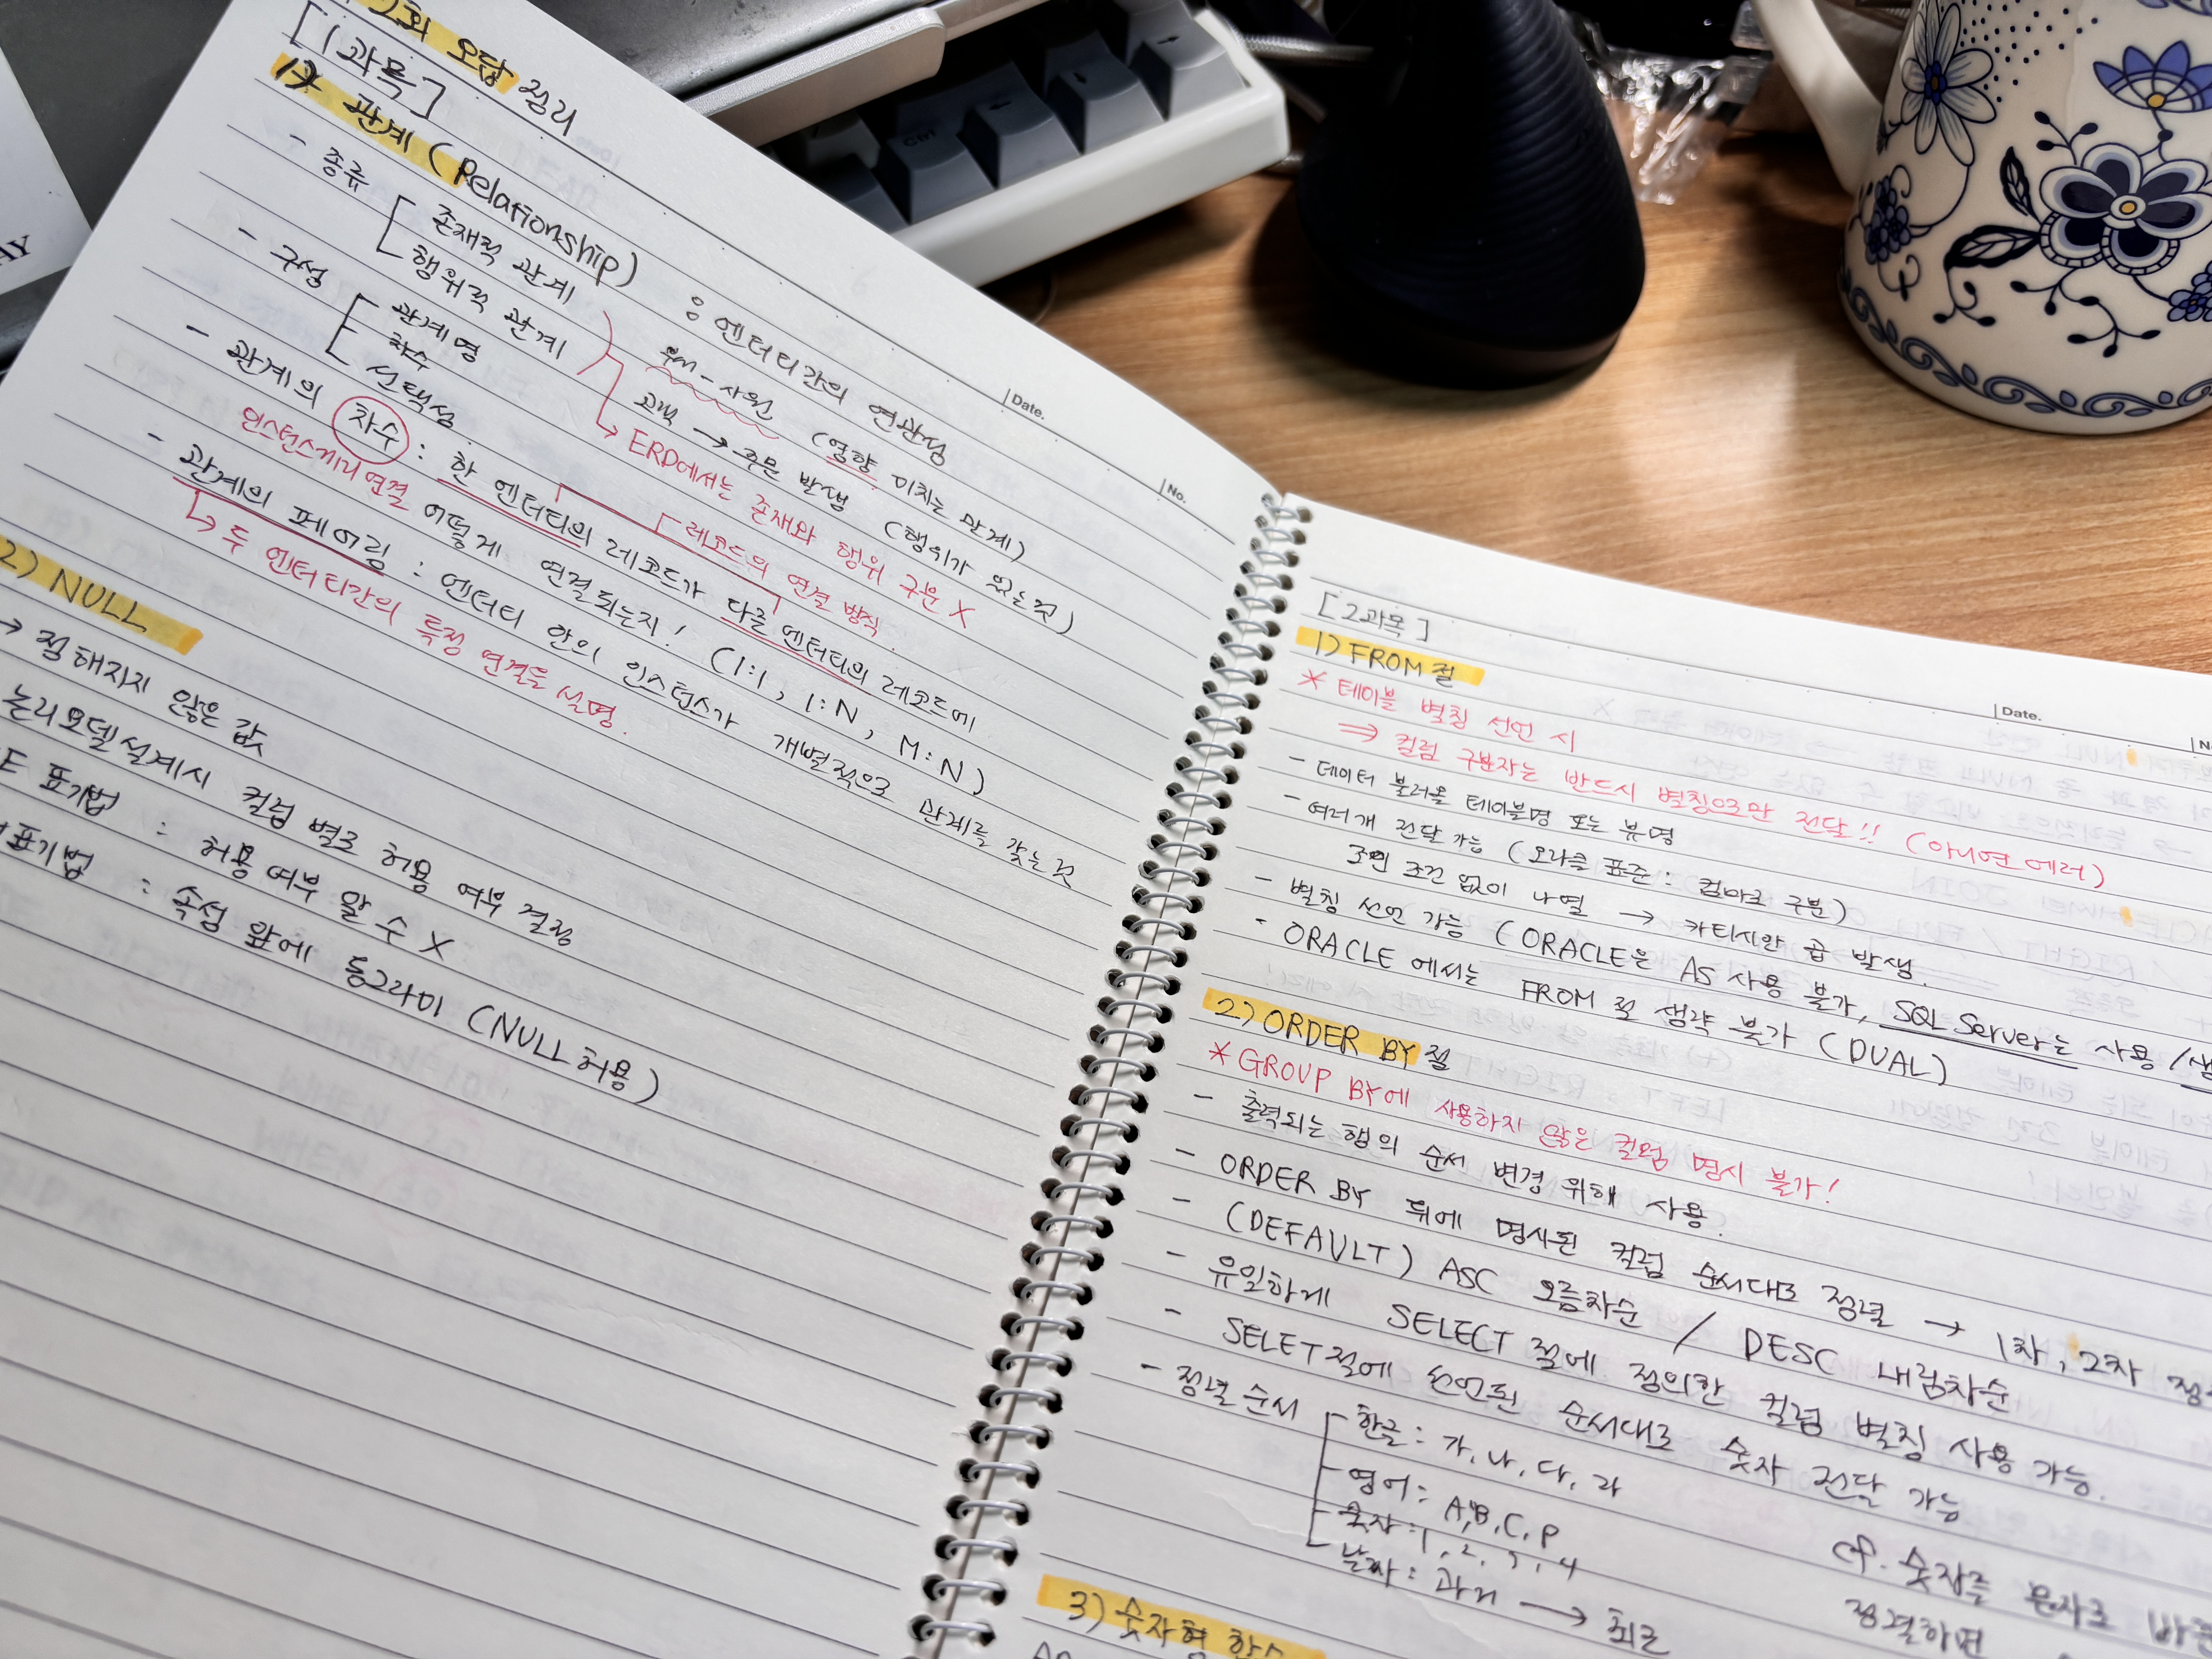 2회 오답 정리
[1과목]
1) 관계 (Relationship) : 엔터티간의 연관성
- 종류
존재적 관계 - 사원 (영향 미치는 관계)
행위적 관계 고객 → 주문 발생 (행위가 있는 것)
ERD에서는 존재와 행위 구분 X
- 구성
관계명
차수
선택성
[레코드의 연결 방식
- 관계의 차수 : 한 엔터티의 레코드가 다른 엔터티의 레코드에
인스턴스끼리 연결 어떻게 연결되는지! (1:1, 1:N, M:N)
- 관계의 페어링 : 엔터티 안의 인스턴스가 개별적으로 관계를 갖는 것
↳ 두 엔터티간의 특정 연결을 설명.
2) NULL
→ 정해지지 않은 값
논리모델설계시 컬럼 별로 허용 여부 결정
E 표기법 : 허용여부 알 수 X
표기법 : 속성 앞에 동그라미 (NULL 허용)
Date.
No.
[2과목]
1) FROM절
* 테이블 별칭 선언 시
⇒ 컬럼 구분자는 반드시 별칭으로만 전달!! (아니면 에러)
- 데이터 불러올 테이블명 또는 뷰명
- 여러개 전달 가능 (오라클 표준 : 컴마로 구분)
조인 조건 없이 나열 → 카티시안 곱 발생.
- 별칭 선언 가능 (ORACLE은 AS 사용 불가, SQL Server는 사용 /생
- ORACLE 에서는 FROM 절 생략 불가 (DUAL)
2) ORDER BY절
* GROUP BY에 사용하지 않은 컬럼 명시 불가!
- 출력되는 행의 순서 변경 위해 사용.
- ORDER BY 뒤에 명시된 컬럼 순서대로 정렬 → 1차, 2차 정
- (DEFAULT) ASC 오름차순 / DESC 내림차순
- 유일하게 SELECT 절에 정의한 컬럼 별칭 사용 가능.
- SELET절에 선언된 순서대로 숫자 전달 가능
- 정렬 순서
한글 : 가, 나, 다, 라
영어 : A, B, C, D
숫자 : 1, 2, 3, 4
날짜 : 과거 → 최근
cf. 숫자를 문자로 바
정렬하면
3) 숫자형 함수
Date.